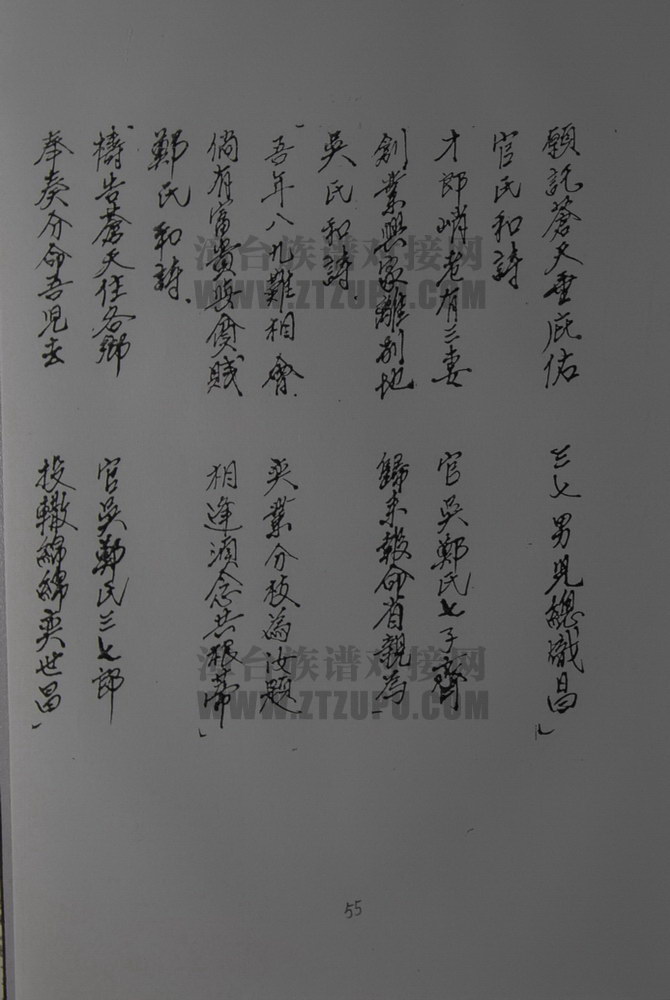 願託蒼天垂庇佑 三七男兒總熾昌」
官氏和詩
才郎峭老有三妻 官吳鄭氏七子齊
創業興家離別地 歸來報命省親為
吳氏和詩.
吾年八九難相會. 奕業分枝為汝題
倘有富貴與貧賤 相逢須念共根蒂」
鄭氏和詩.
禱告蒼天住各鄉 官吳鄭氏三七郎
奉奏分命吾兒去 投轍綿綿奕世昌」
漳台族谱对接网
WWW.ZTZUPU.COM
漳台族谱对接网
WWW.ZTZUPU.COM
55